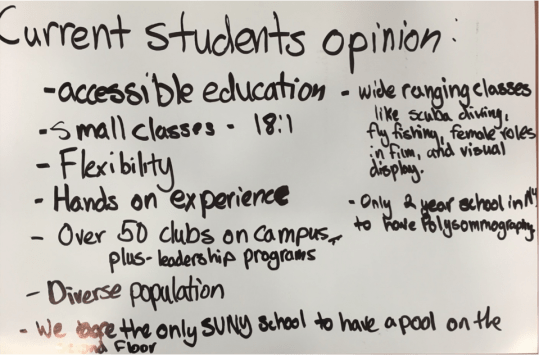 Current students opinion:
-accessible education
-Small classes - 18:1
- Flexibility
- Hands on experience
- Over 50 clubs on campus,
plus-leadership programs
- Diverse population
- We are the only SUNY school to have a pool on the
Floor
- wide ranging classes
like scuba diving,
fly fishing, female roles
in film, and visual
display.
- Only 2 year school in NY
to have Polysommography